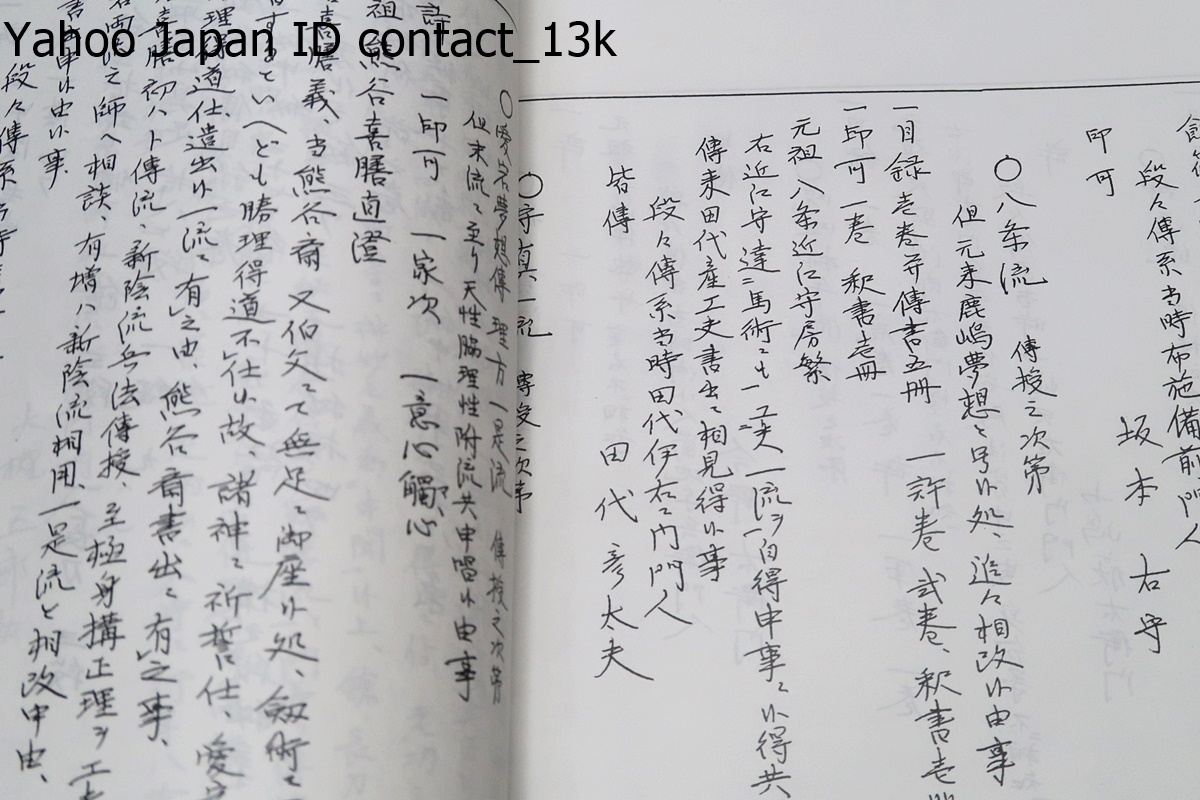 Yahoo Japan ID contact_13k
段々傳系当時布施備前門人
坂本 右守
印可
○八条流 傳授之次第
但元来鹿嶋夢想と号候処、追々相改候由事
一目録壱巻并傳書五冊 一許巻 弐巻、釈書壱冊
一印可一巻 釈書壱冊
元祖八条近江守房繁
右近江守達二馬術とも一流ヲ自得申事
傳来田代産工夫書出ニ相見得候事
段々傳系当時田代伊右衛門門人
田代彦太夫
皆傳
○守真一記 傳授之次第
但末流ニ至り天性臨理性附流共申唱候由事
一印可 一家次 一意心觸心
祖 熊谷喜膳直澄
喜膳義、当熊谷斎 又伯父ニて無足ニ御座候処、劔術ニ
するといへども勝理得道不仕候故、諸神ニ祈誓仕、愛宕
理得道仕遣出候一流ニ有之由、熊谷斎書出ニ有之事、
喜膳初ハト傳流、新陰流兵法傳授、至極身搆正理ヲ工夫
之師へ相談、有増ハ新陰流相用、一足流と相改申由、
申候由候事
段々傳系